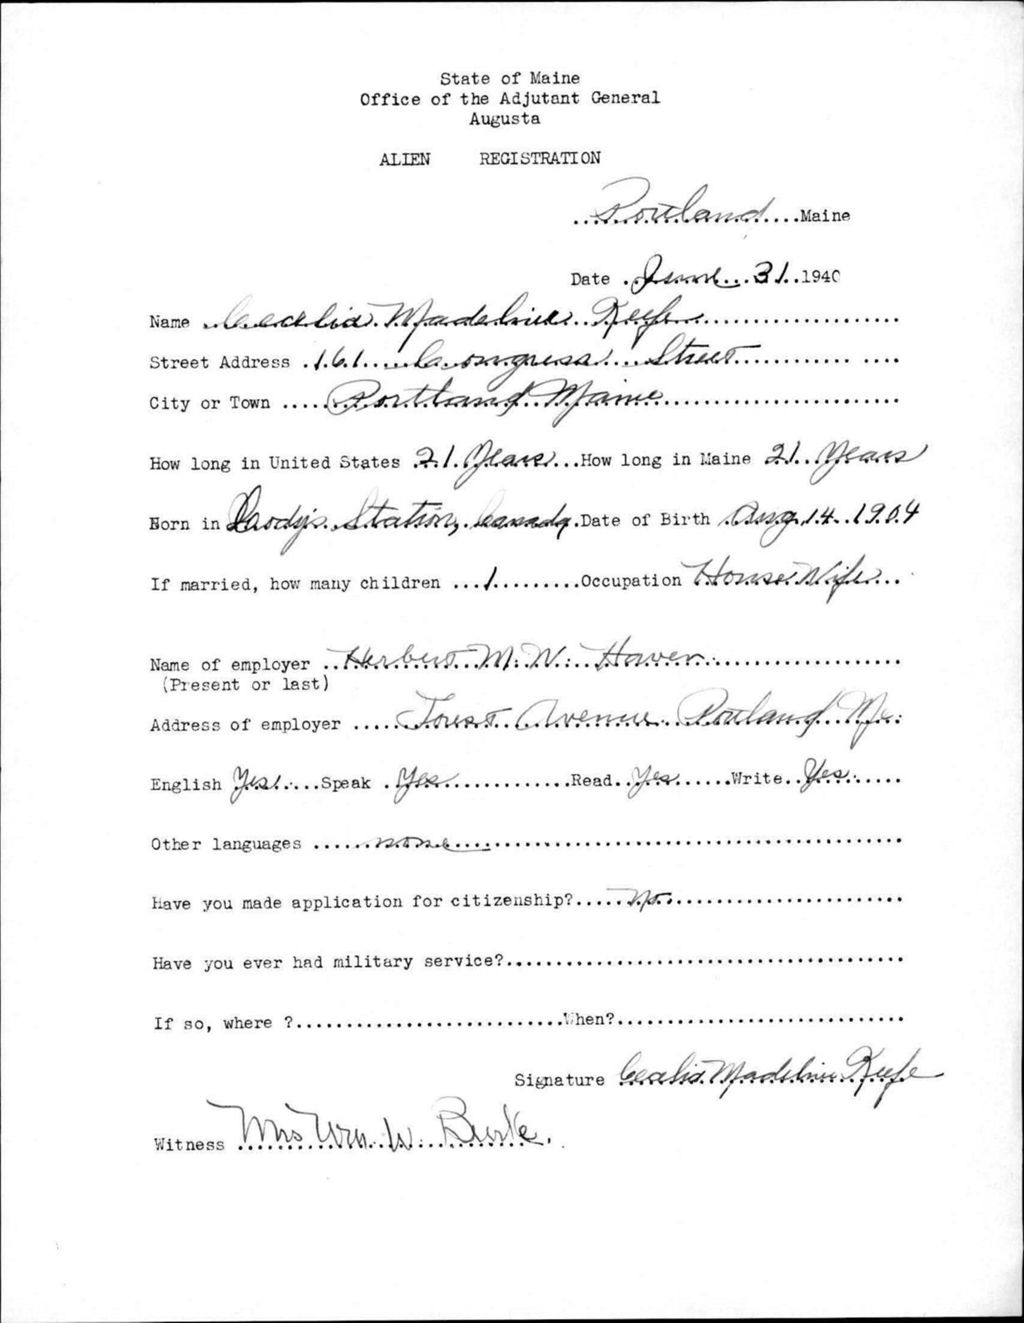 State of Maine
Office of the Adjutant General
Augusta
ALIEN REGISTRATION
Portland Maine
Date June 31 1940
Name Cecelia Madeline Keefe
Street Address 161 Congress Street
City or Town Portland Maine
How long in United States 21 Years How long in Maine 21 Years
Born in Station, Canada Date of Birth Aug 14 1904
If married, how many children 1 Occupation House Wife
Name of employer Herbert M. W. Haven
(Present or last)
Address of employer Forest Avenue Portland Me.
English Yes Speak Yes Read Yes Write Yes
Other languages none
Have you made application for citizenship? No
Have you ever had military service?
If so, where ? When?
Signature Cecelia Madeline Keefe
Witness Mrs Wm. W. Burke.